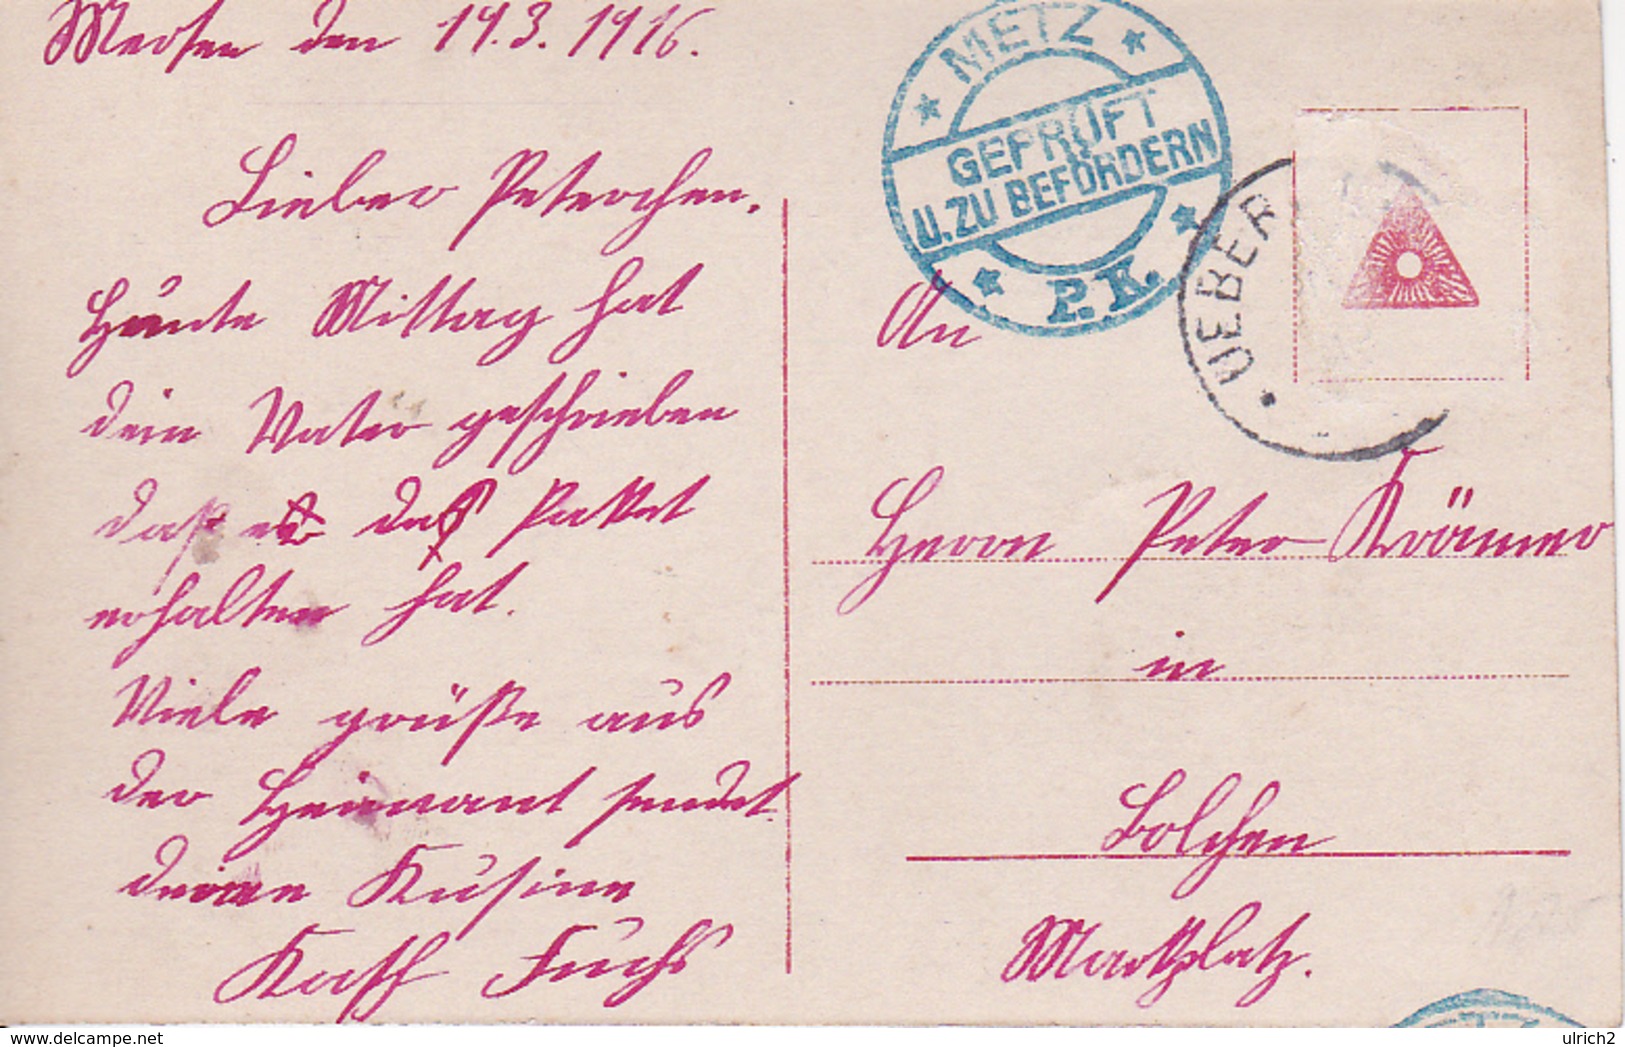 den 19.3.1916.
Lieber Peterchen.
Heute Mittag hat
dein Vater geschrieben
daß er das Packet
erhalten hat.
Viele grüße aus
der Heimant sendet
deine Kusine
Kath Fuchs
METZ
GEPRÜFT
U. ZU BEFÖRDERN
P.K.
UEBER
An
Herrn Peter Krämer
in
Bolchen
Marktplatz.
delcampe.net
ulrich2